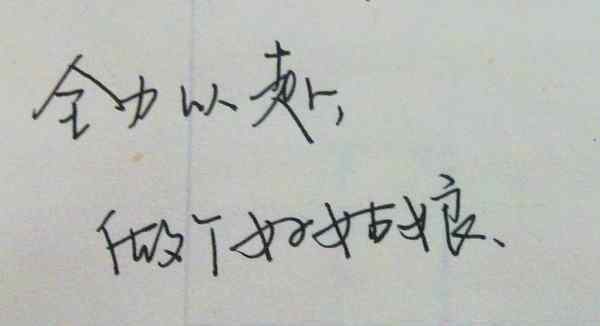 全力以赴,
做个好姑娘、